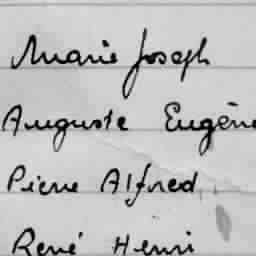 Marie Joseph
Auguste Eugène
Pierre Alfred
René Henri